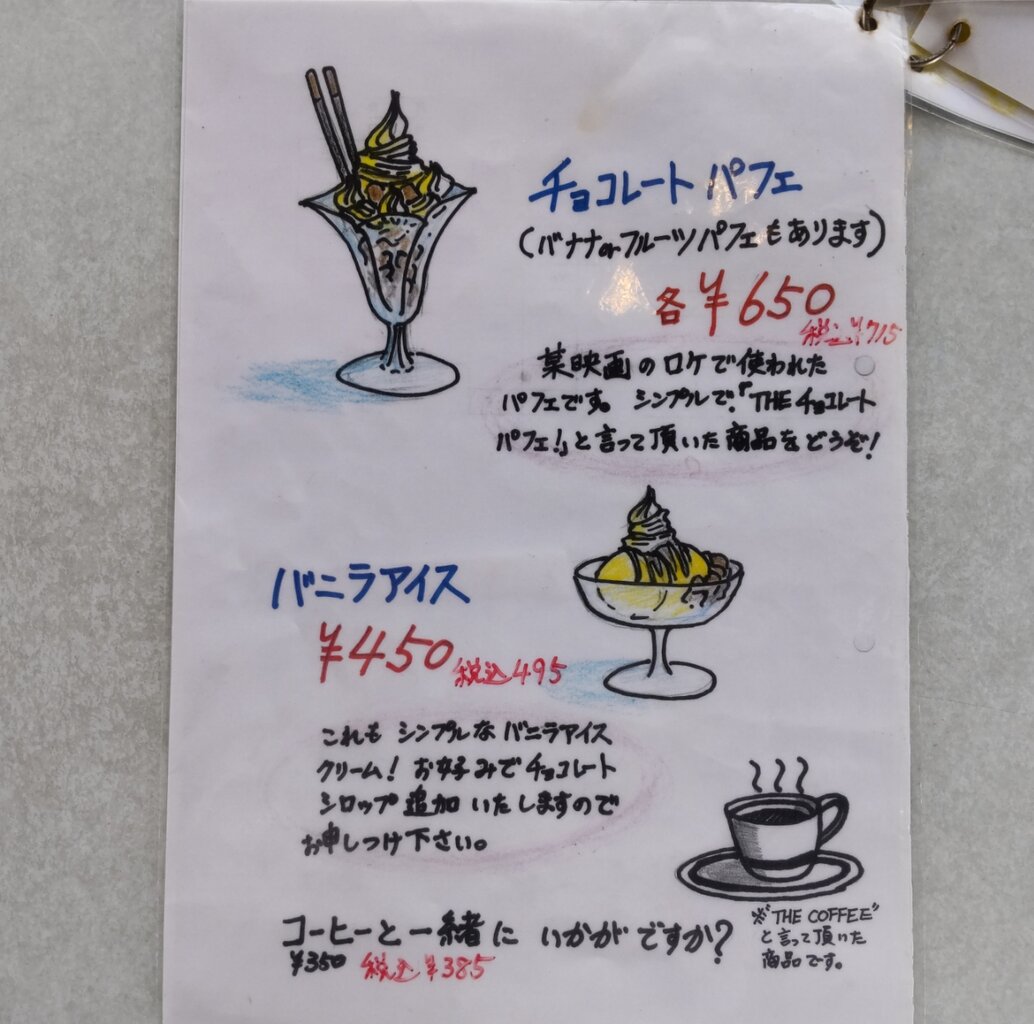 チョコレートパフェ
(バナナorフルーツパフェもあります)
各¥650
税込¥715
某映画のロケで使われた
パフェです。シンプルで、「THEチョコレート
パフェ!」と言って頂いた商品をどうぞ!
バニラアイス
¥450 税込495
これもシンプルなバニラアイス
クリーム! お好みでチョコレート
シロップ追加いたしますので
お申しつけ下さい。
コーヒーと一緒にいかがですか?
¥350 税込¥385
※"THE COFFEE"
と言って頂いた
商品です。